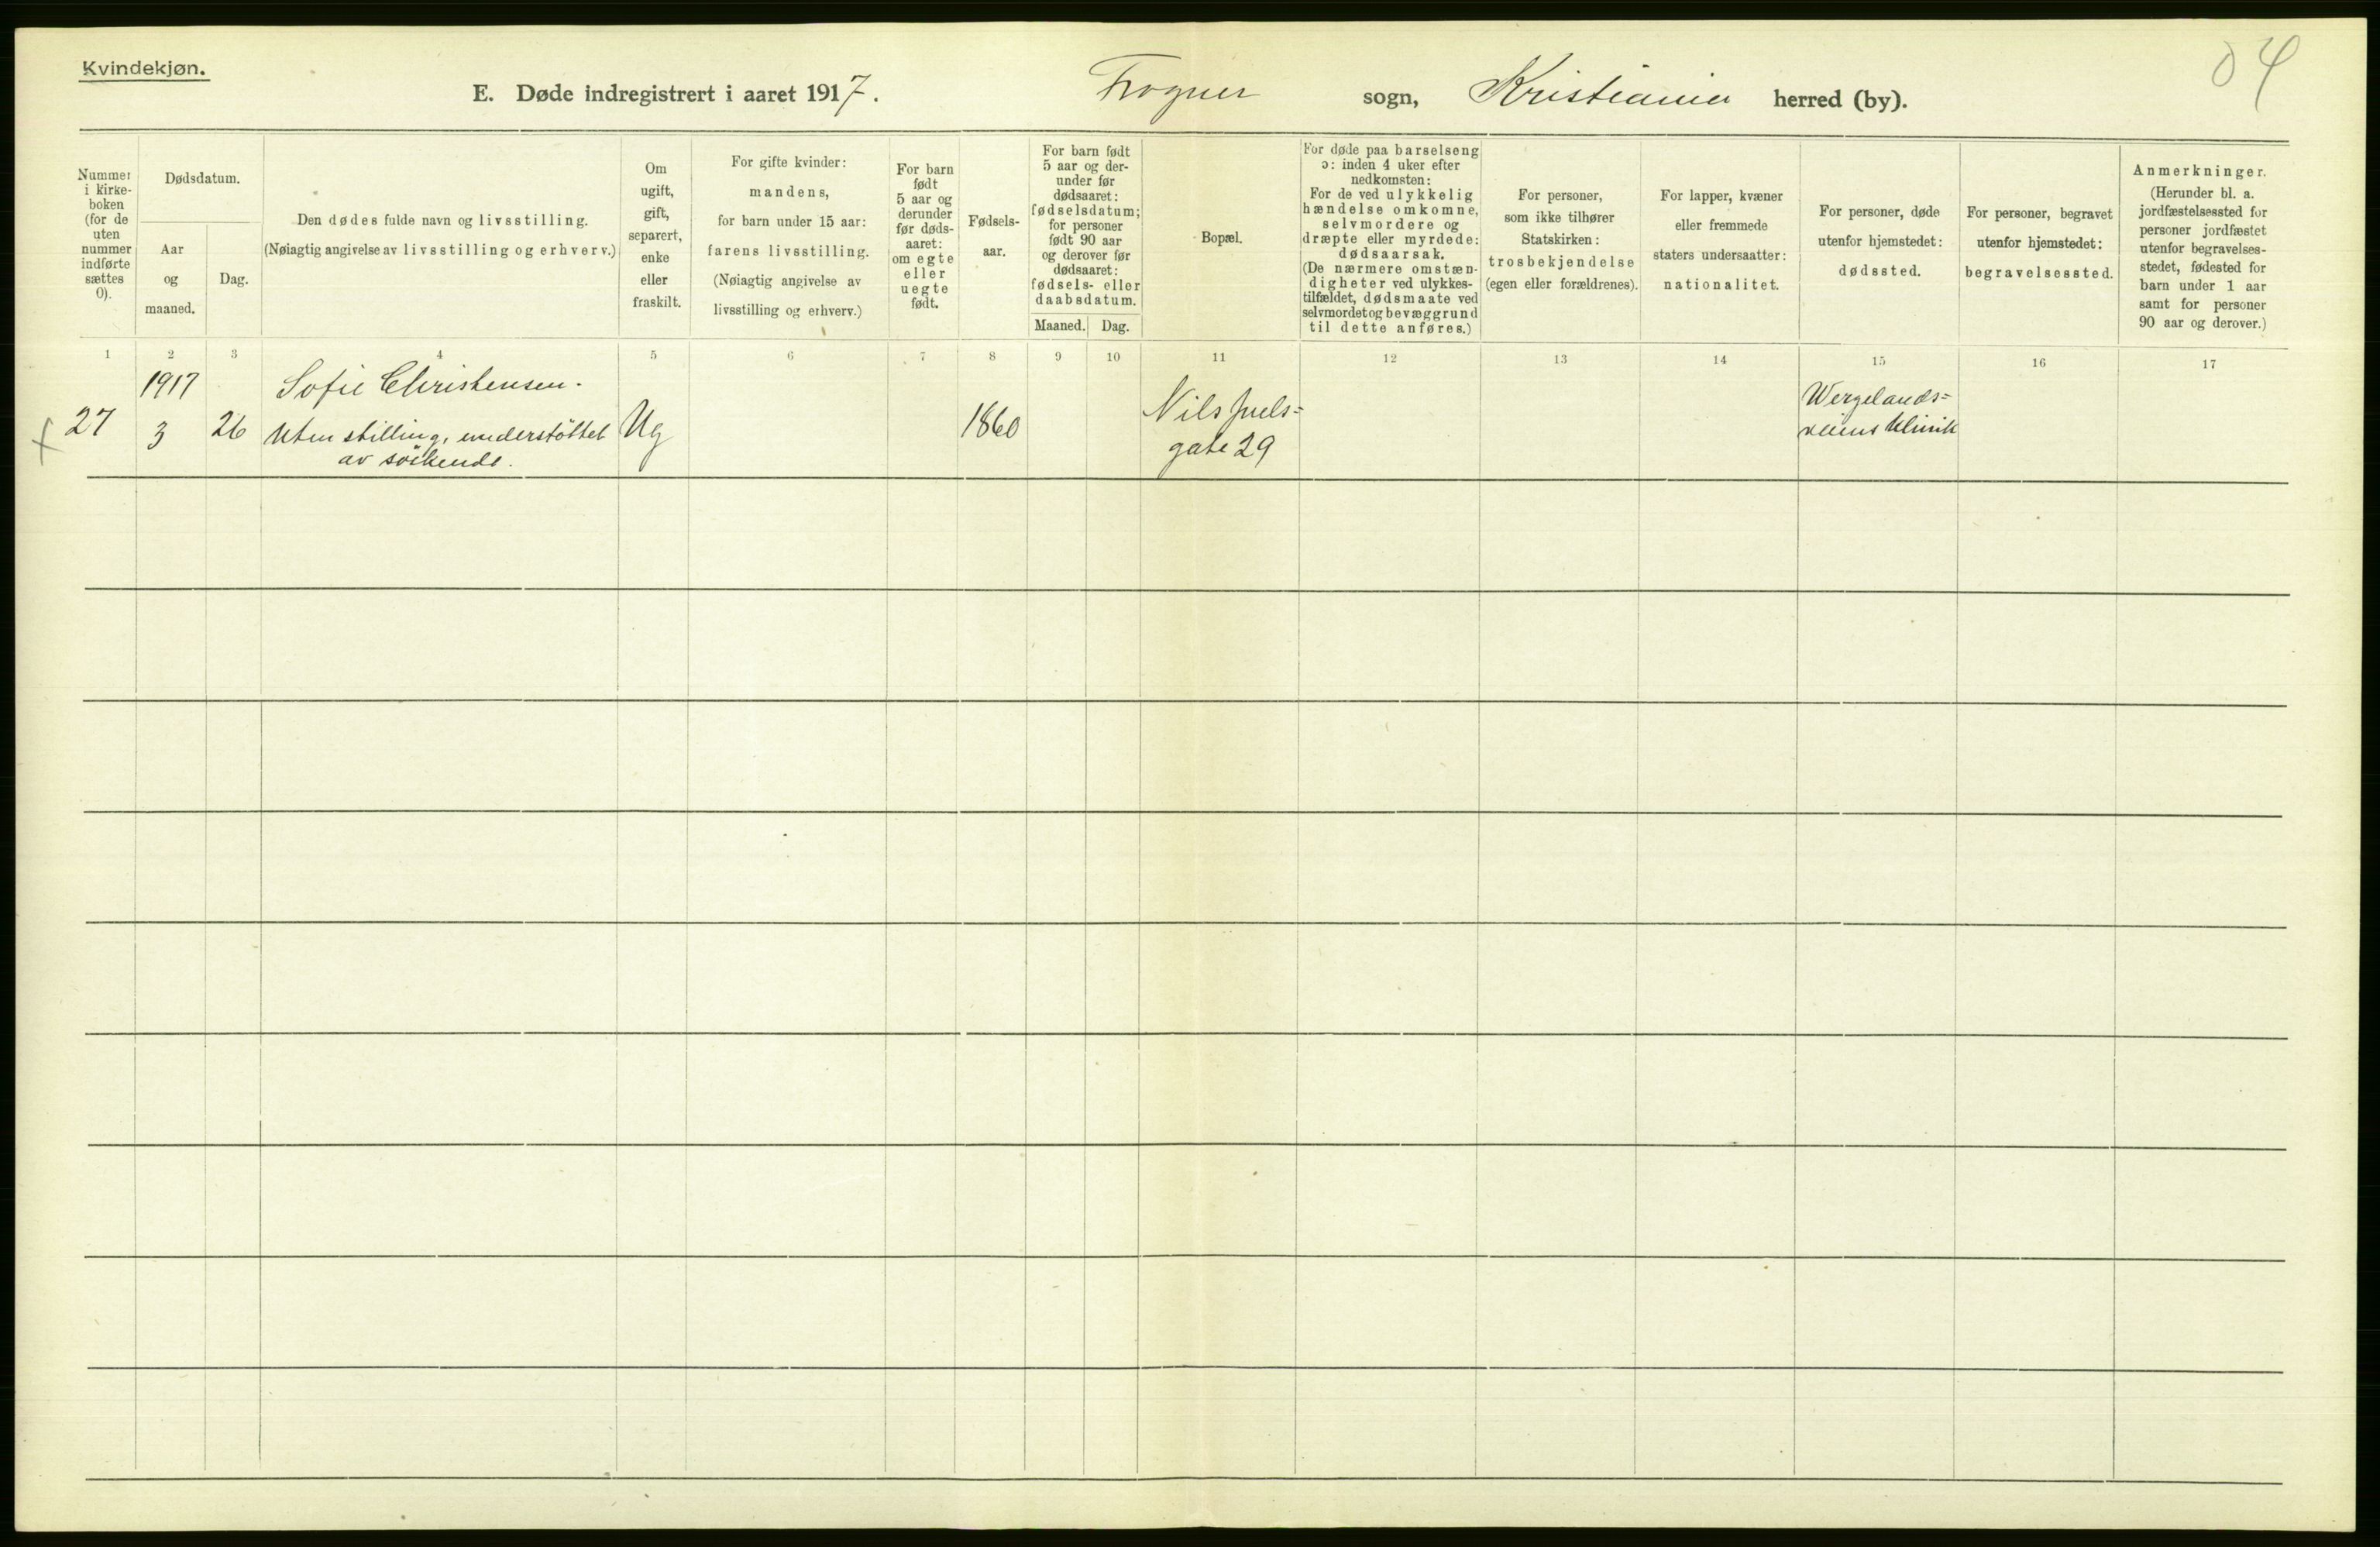 Kvindekjøn.
04
E. Døde indregistrert i aaret 1917. Frogner sogn, Kristiania herred (by).
Nummer
i kirke-
boken
(for de
uten
nummer
indførte
sættes
0).
Dødsdatum.
Aar
og
maaned.
Dag.
Den dødes fulde navn og livsstilling.
(Nøiagtig angivelse av livsstilling og erhverv.)
Om
ugift,
gift,
separert,
enke
eller
fraskilt.
For gifte kvinder:
mandens,
for barn under 15 aar:
farens livsstilling.
(Nøiagtig angivelse av
livsstilling og erhverv.)
For barn
født
5 aar og
derunder
før døds-
aaret:
om egte
eller
uegte
født.
Fødsels-
aar.
For barn født
5 aar og der-
under før
dødsaaret:
fødselsdatum;
for personer
født 90 aar
og derover før
dødsaaret:
fødsels- eller
daabsdatum.
Maaned. Dag.
Bopæl.
For døde paa barselseng
ɔ: inden 4 uker efter
nedkomsten:
For de ved ulykkelig
hændelse omkomne,
selvmordere og
dræpte eller myrdede:
dødsaarsak.
(De nærmere omstæn-
digheter ved ulykkes-
tilfældet, dødsmaate ved
selvmordet og bevæggrund
til dette anføres.)
For personer,
som ikke tilhører
Statskirken:
trosbekjendelse
(egen eller forældrenes).
For lapper, kvæner
eller fremmede
staters undersaatter:
nationalitet.
For personer, døde
utenfor hjemstedet:
dødssted.
For personer, begravet
utenfor hjemstedet:
begravelsessted.
Anmerkninger.
(Herunder bl. a.
jordfæstelsessted for
personer jordfæstet
utenfor begravelses-
stedet, fødested for
barn under 1 aar
samt for personer
90 aar og derover.)
1 2 3 4 5 6 7 8 9 10 11 12 13 14 15 16 17
x 27
1917
3
26
Sofie Christensen.
Uten stilling, understöttet
av söskende.
Ug
1860
Nils Juels=
gate 29
Wergelands=
veiens klinik